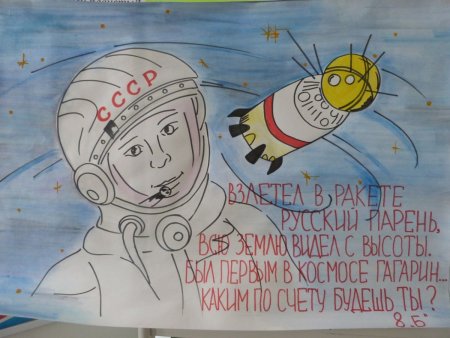 СССР
ВЗЛЕТЕЛ В РАКЕТЕ
РУССКИЙ ПАРЕНЬ,
ВСЮ ЗЕМЛЮ ВИДЕЛ С ВЫСОТЫ.
БЫЛ ПЕРВЫМ В КОСМОСЕ ГАГАРИН...
КАКИМ ПО СЧЕТУ БУДЕШЬ ТЫ?
8 "Б"